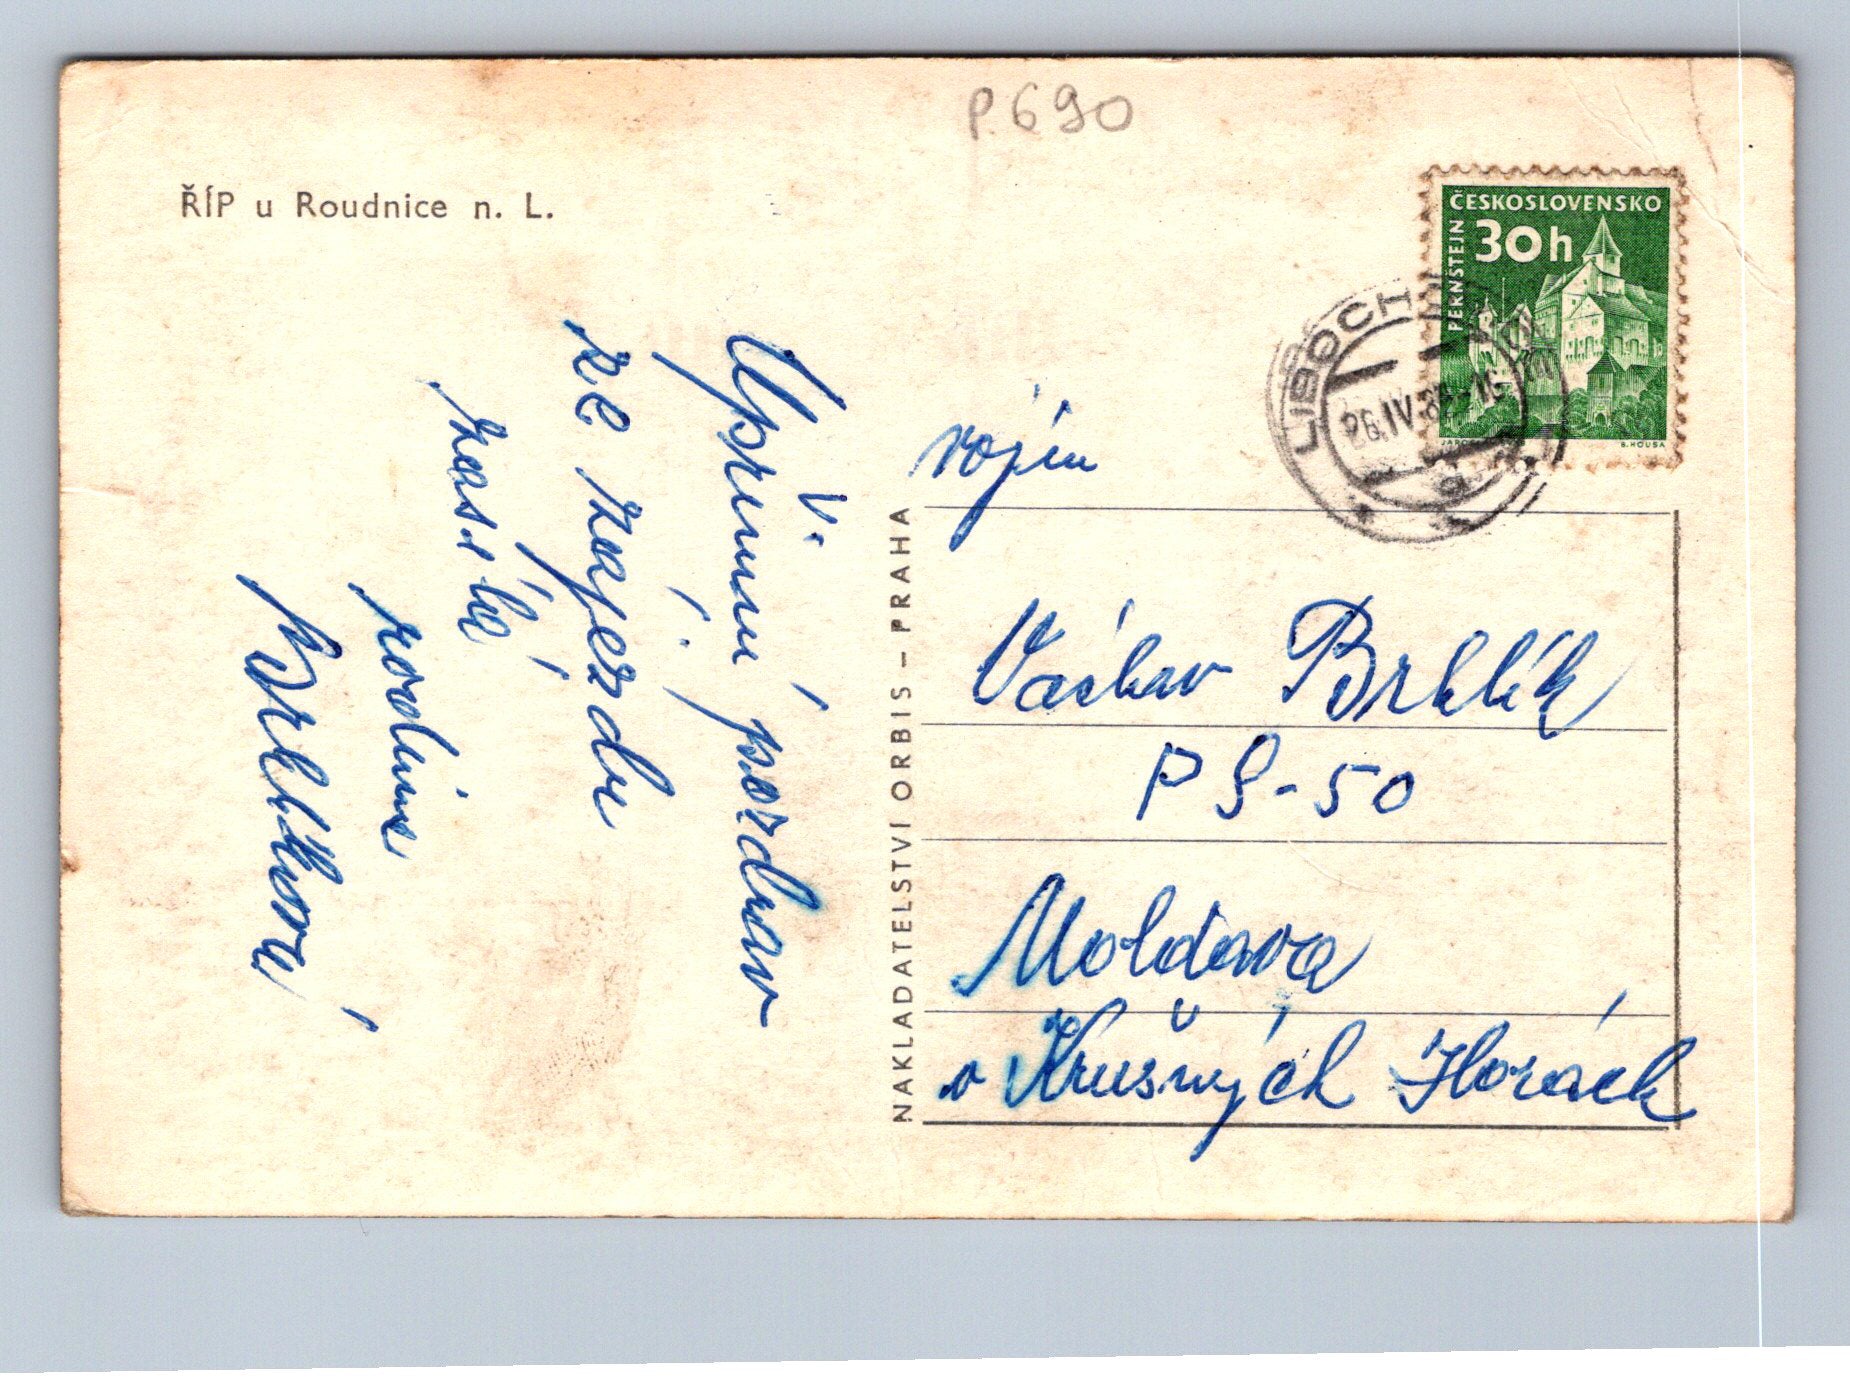 P 690
ŘÍP u Roudnice n. L.
ČESKOSLOVENSKO
PERNŠTEJN
30h
B. HOUSA
LIBOCHO
26.IV.
Upřímný pozdrav
ze zájezdu
zasílá
rodina
Brhlíková
NAKLADATELSTVÍ ORBIS – PRAHA
vojín
Václav Brhlík
PS-50
Moldava
v Krušných Horách